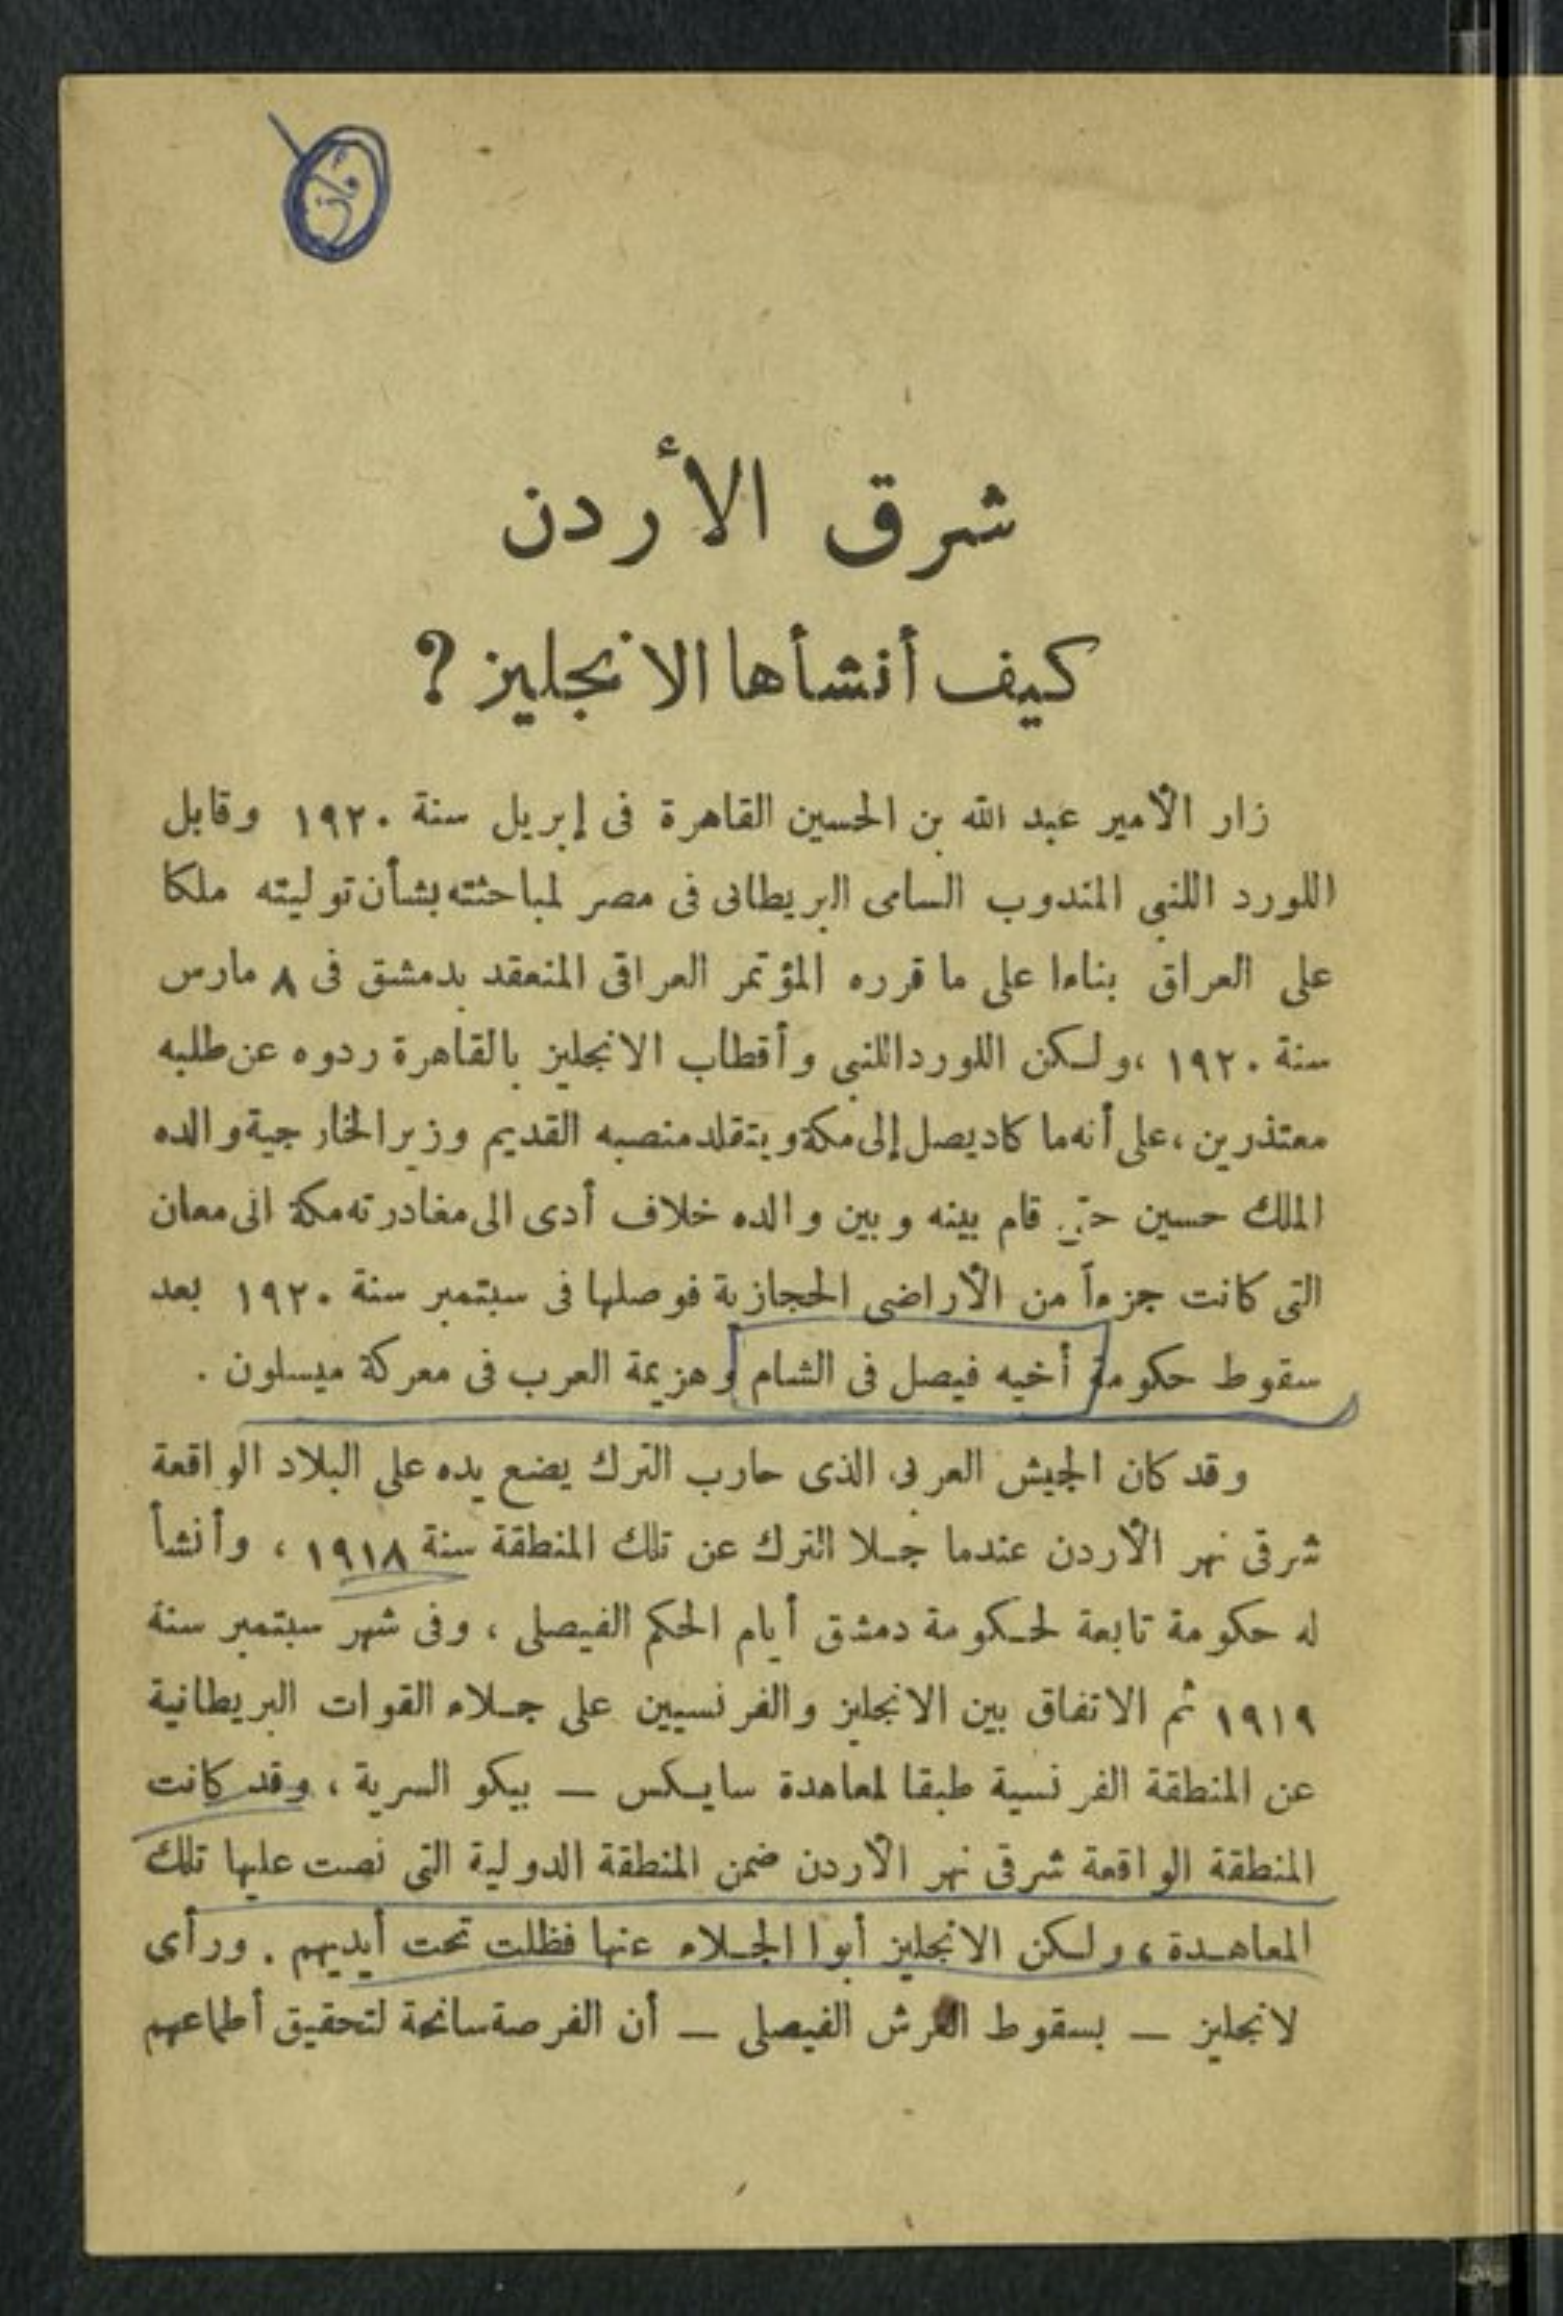 شرق الأردن
كيف أنشأها الانجليز ؟
زار الأمير عبد الله بن الحسين القاهرة فى إبريل سنة ١٩٢٠ وقابل
اللورد اللنبى المندوب السامى البريطانى فى مصر لمباحثته بشأن توليته ملكا
على العراق بناءا على ما قرره المؤتمر العراقى المنعقد بدمشق فى ٨ مارس
سنة ١٩٢٠ ، ولكن اللورد اللنبى وأقطاب الانجليز بالقاهرة ردوه عن طلبه
معتذرين ، على أنه ما كاد يصل إلى مكة ويتقلد منصبه القديم وزير الخارجية والده
الملك حسين حتى قام بينه وبين والده خلاف أدى الى مغادرته مكة الى معان
التى كانت جزءاً من الأراضى الحجازية فوصلها فى سبتمبر سنة ١٩٢٠ بعد
سقوط حكومة أخيه فيصل فى الشام وهزيمة العرب فى معركة ميسلون .
وقد كان الجيش العربى الذى حارب الترك يضع يده على البلاد الواقعة
شرقى نهر الأردن عندما جلا الترك عن تلك المنطقة سنة ١٩١٨ ، وأنشأ
له حكومة تابعة لحكومة دمشق أيام الحكم الفيصلى ، وفى شهر سبتمبر سنة
١٩١٩ تم الاتفاق بين الانجليز والفرنسيين على جلاء القوات البريطانية
عن المنطقة الفرنسية طبقا لمعاهدة سايكس — بيكو السرية ، وقد كانت
المنطقة الواقعة شرقى نهر الأردن ضمن المنطقة الدولية التى نصت عليها تلك
المعاهدة ، ولكن الانجليز أبوا الجلاء عنها فظلت تحت أيديهم . ورأى
لانجليز — بسقوط العرش الفيصلى — أن الفرصة سانحة لتحقيق أطماعهم